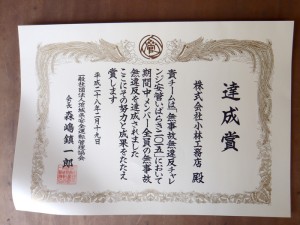 達成賞
株式会社小林工務店 殿
貴チームは「無事故無違反チャレ
ンジ安管いばらき二〇一五」において
期間中、メンバー全員の無事故
無違反を達成されました
ここにその努力と成果をたたえ
賞します
平成二十八年二月十九日
一般社団法人茨城県安全運転管理協会
会長 森嶋鎮一郎